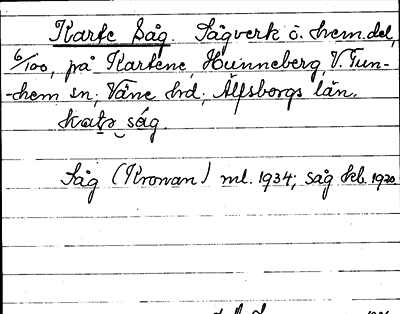 Karfe Såg. Sågverk o. hem.del,
6/100, på Karfene, Hunneberg, V. Tun-
-hem sn, Väne hrd, Älfsborgs län.
såg.
Såg (Kronan) ml. 1934; såg kb. 1920.